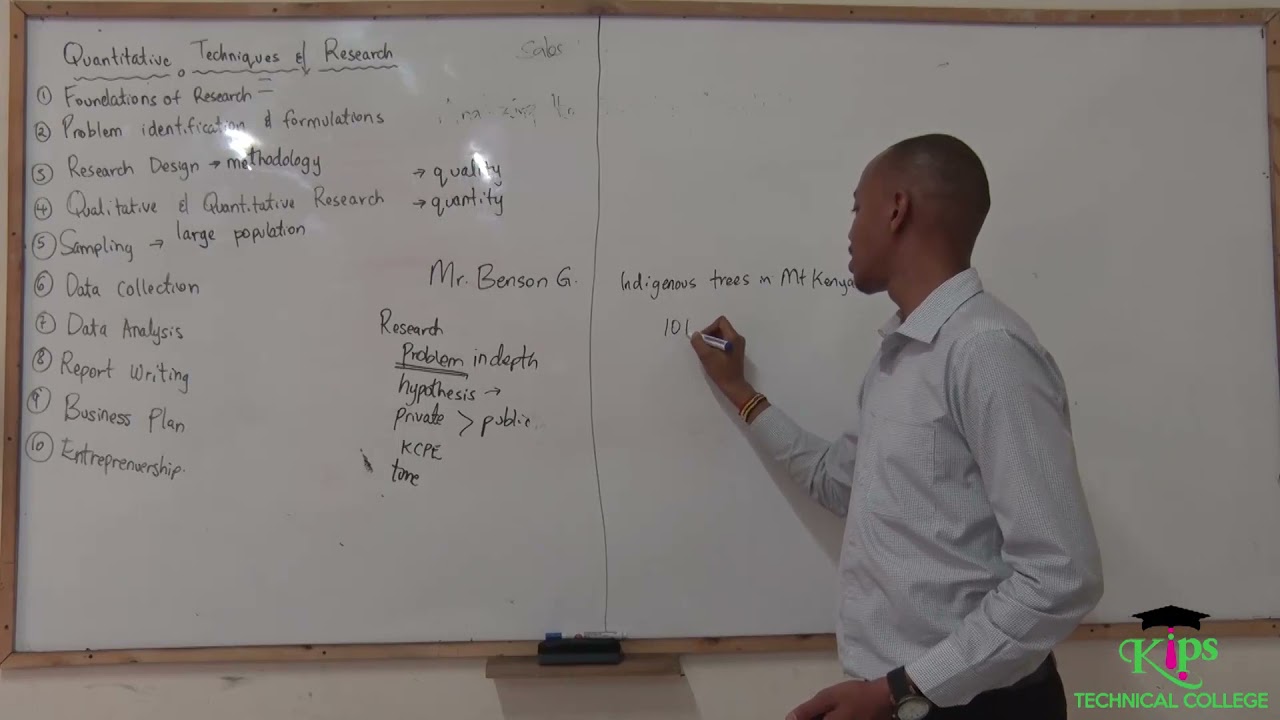 Quantitative Techniques & Research
① Foundations of Research
② Problem identification & formulations
③ Research Design → methodology → quality
④ Qualitative & Quantitative Research → quantity
⑤ Sampling → large population
⑥ Data Collection
⑦ Data Analysis
⑧ Report Writing
⑨ Business Plan
⑩ Entreprenuership.
Mr. Benson G.
Research
Problem in depth
hypothesis →
private > public
KCPE
time
Indigenous trees in Mt Kenya
101
Kips
TECHNICAL COLLEGE